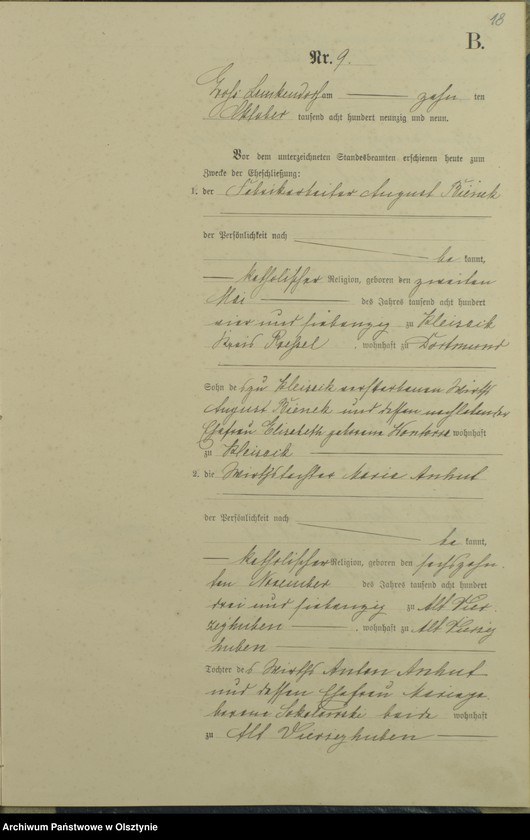 18
B.
Nr. 9.
Groß Lemkendorf am zehn ten
Oktober tausend acht hundert neunzig und neun.
Vor dem unterzeichneten Standesbeamten erschienen heute zum
Zwecke der Eheschließung:
1. der Fabrikarbeiter August
der Persönlichkeit nach
be kannt,
katholischer Religion, geboren den zweiten
Mai des Jahres tausend acht hundert
vier und siebenzig zu Kleisack
Kreis Roessel, wohnhaft zu Dortmund
Sohn des zu verstorbenen Wirths
August und dessen nachlebender
Ehefrau Elisabeth geborene wohnhaft
zu
2. die Wirthstochter Maria Anhut
der Persönlichkeit nach
be kannt,
katholischer Religion, geboren den sechszehn
ten November des Jahres tausend acht hundert
drei und siebenzig zu Alt Vier
zighuben, wohnhaft zu Alt Vierzig
huben
Tochter des Wirths Anton Anhut
und dessen Ehefrau Maria ge
borene Sokolowski beide wohnhaft
zu Alt Vierzighuben
Archiwum Państwowe w Olsztynie